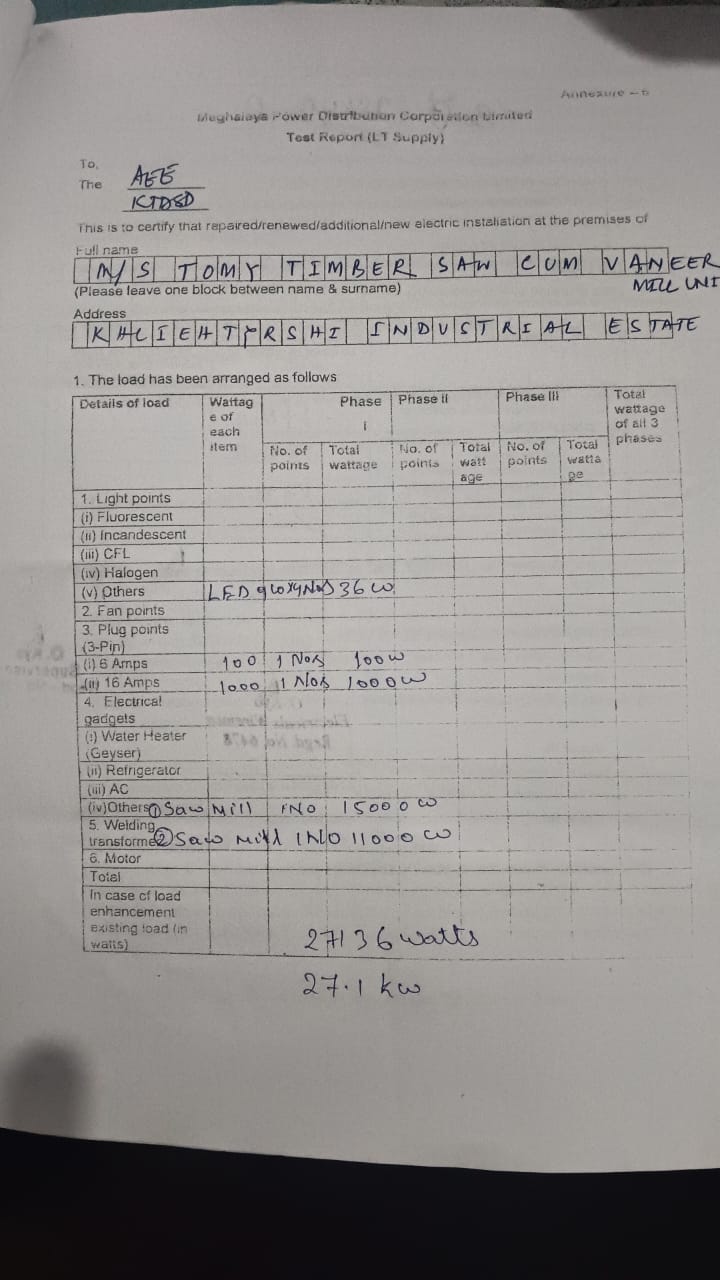 Annexure - 6
Meghalaya Power Distribution Corporation Limited
Test Report (LT Supply)
To,
The AEE
KTDSD
This is to certify that repaired/renewed/additional/new electric installation at the premises of
Full name
M/S TOMY TIMBER SAW CUM VANEER
(Please leave one block between name & surname) MILL UNI
Address
KHLIEHTYRSHI INDUSTRIAL ESTATE
1. The load has been arranged as follows
Details of load Wattag e of each item Phase I Phase II Phase III Total wattage of all 3 phases
No. of points Total wattage No. of points Total watt age No. of points Total watta ge
1. Light points
(i) Fluorescent
(ii) Incandescent
(iii) CFL
(iv) Halogen
(v) Others LED 9w x 4 Nos 36 w
2. Fan points
3. Plug points
(3-Pin)
(i) 6 Amps 100 1 Nos 100w
(ii) 16 Amps 1000 1 Nos 1000w
4. Electrical
gadgets
(i) Water Heater
(Geyser)
(ii) Refrigerator
(iii) AC
(iv) Others ① Saw Mill 1NO 15000 w
5. Welding
transforme ② Saw Mill 1NO 11000 w
6. Motor
Total
In case of load
enhancement
existing load (in
watts) 27136 watts
27.1 kw